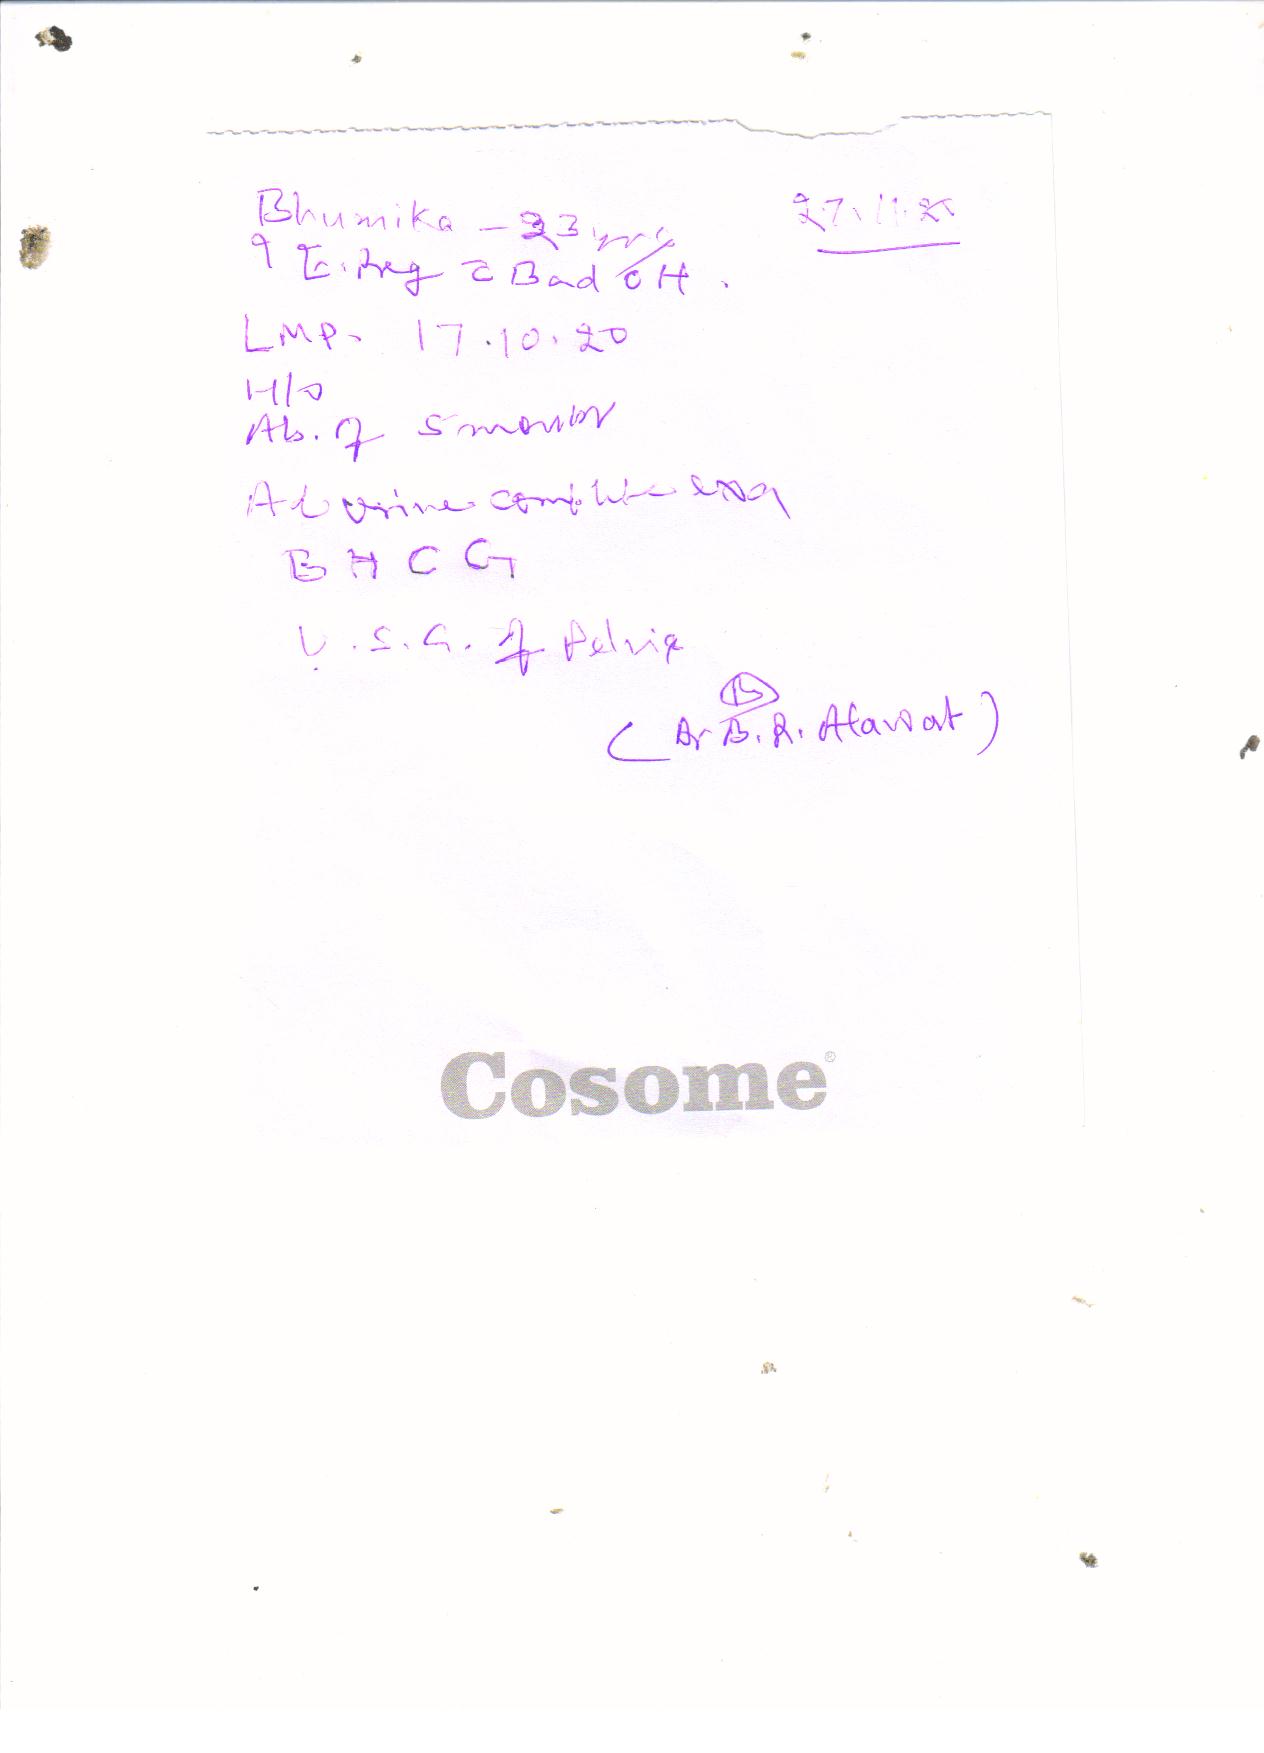 Bhumika - 23 yrs 27.11.20
? E. Preg c̄ Bad OH.
LMP. 17.10.20
H/O
Ab. of 5 months
Ad urine complete exa
B H C G
U.S.G. of Pelvis
(Dr B.R. Atawat)
Cosome®